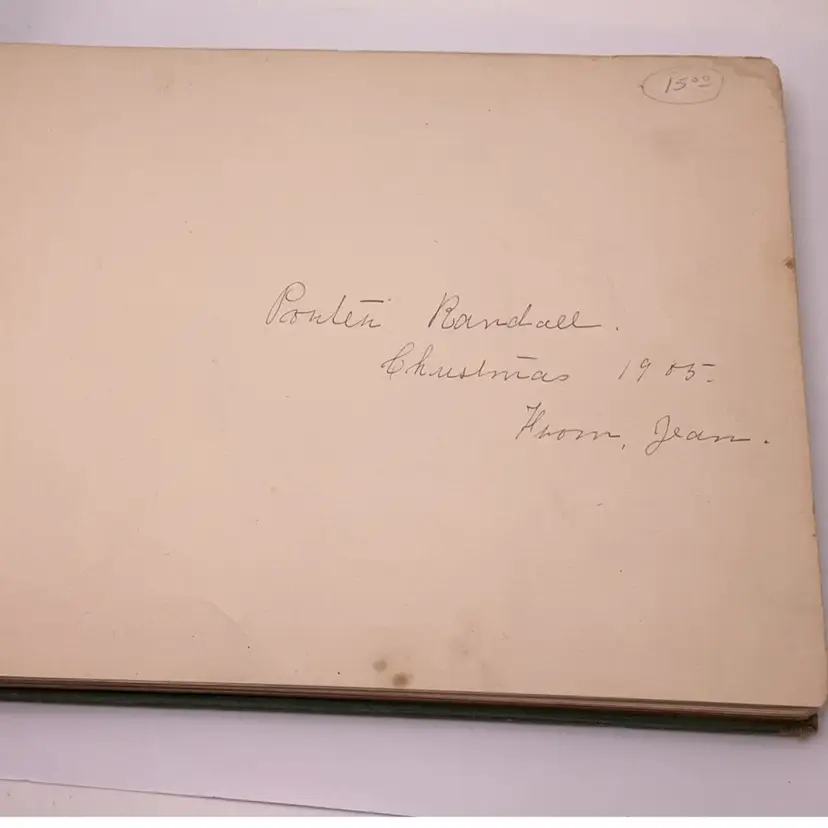 15⁰⁰
Randall.
Christmas 1905.
From, Jean.